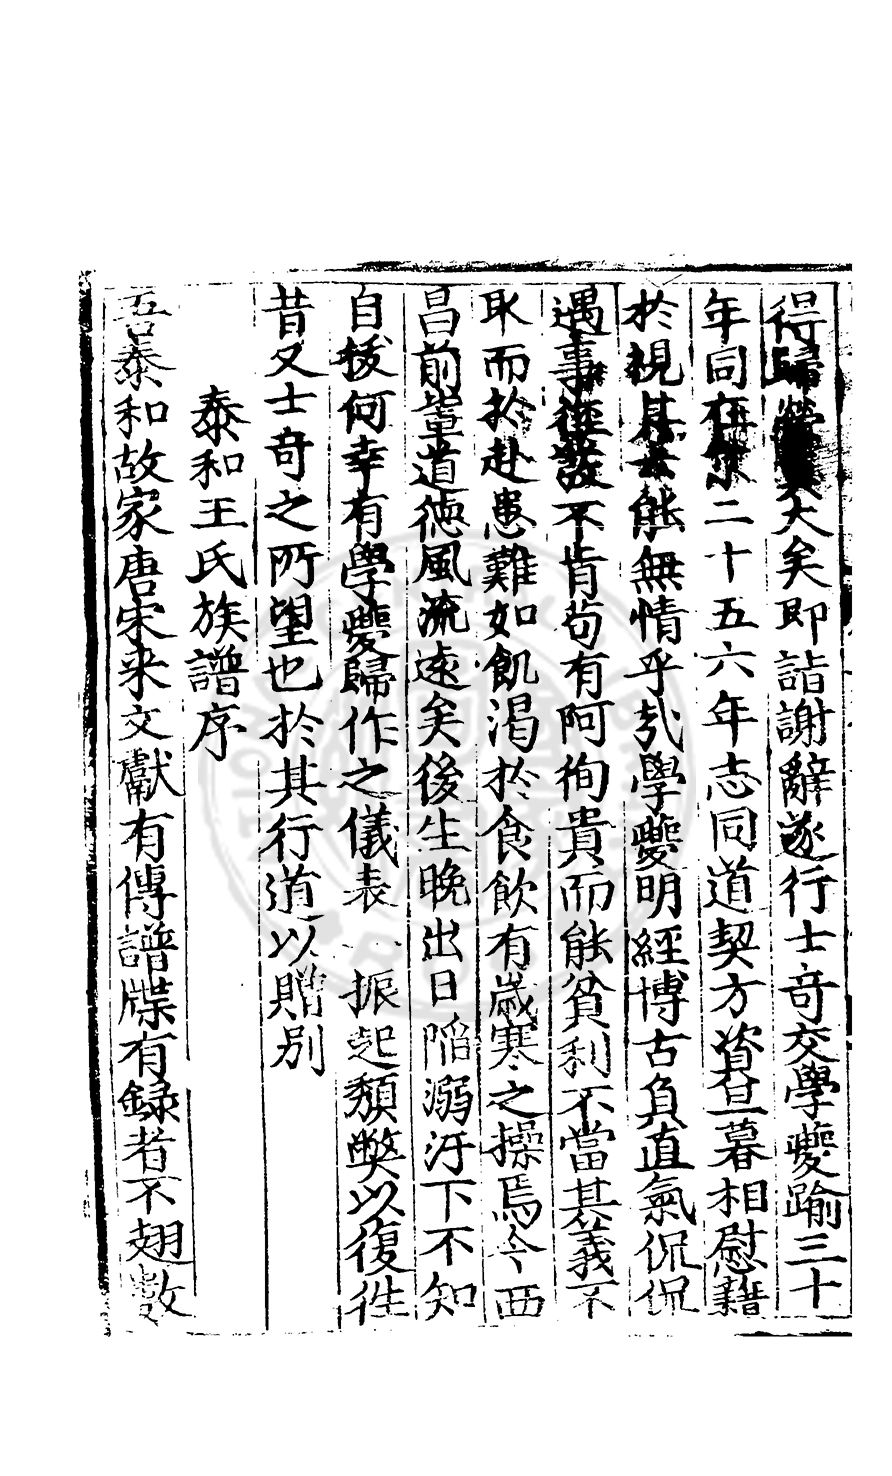 得歸榮大矣即詣謝辭遂行士奇交學夔踰三十
年同在二十五六年志同道契方資旦暮相慰藉
於視其去能無情乎哉學夔明經博古負直氣侃侃
遇事不肯苟有阿徇貴而能貧利不當其義不
取而於赴患難如飢渴於食飲有歲寒之操焉今西
昌前輩道德風流遠矣後生晚出日陷溺汙下不知
自拔何幸有學夔歸作之儀表振起頹弊以復徃
昔又士奇之所望也於其行道以贈别
泰和王氏族譜序
吾泰和故家唐宋來文獻有傳譜牒有録者不翅數